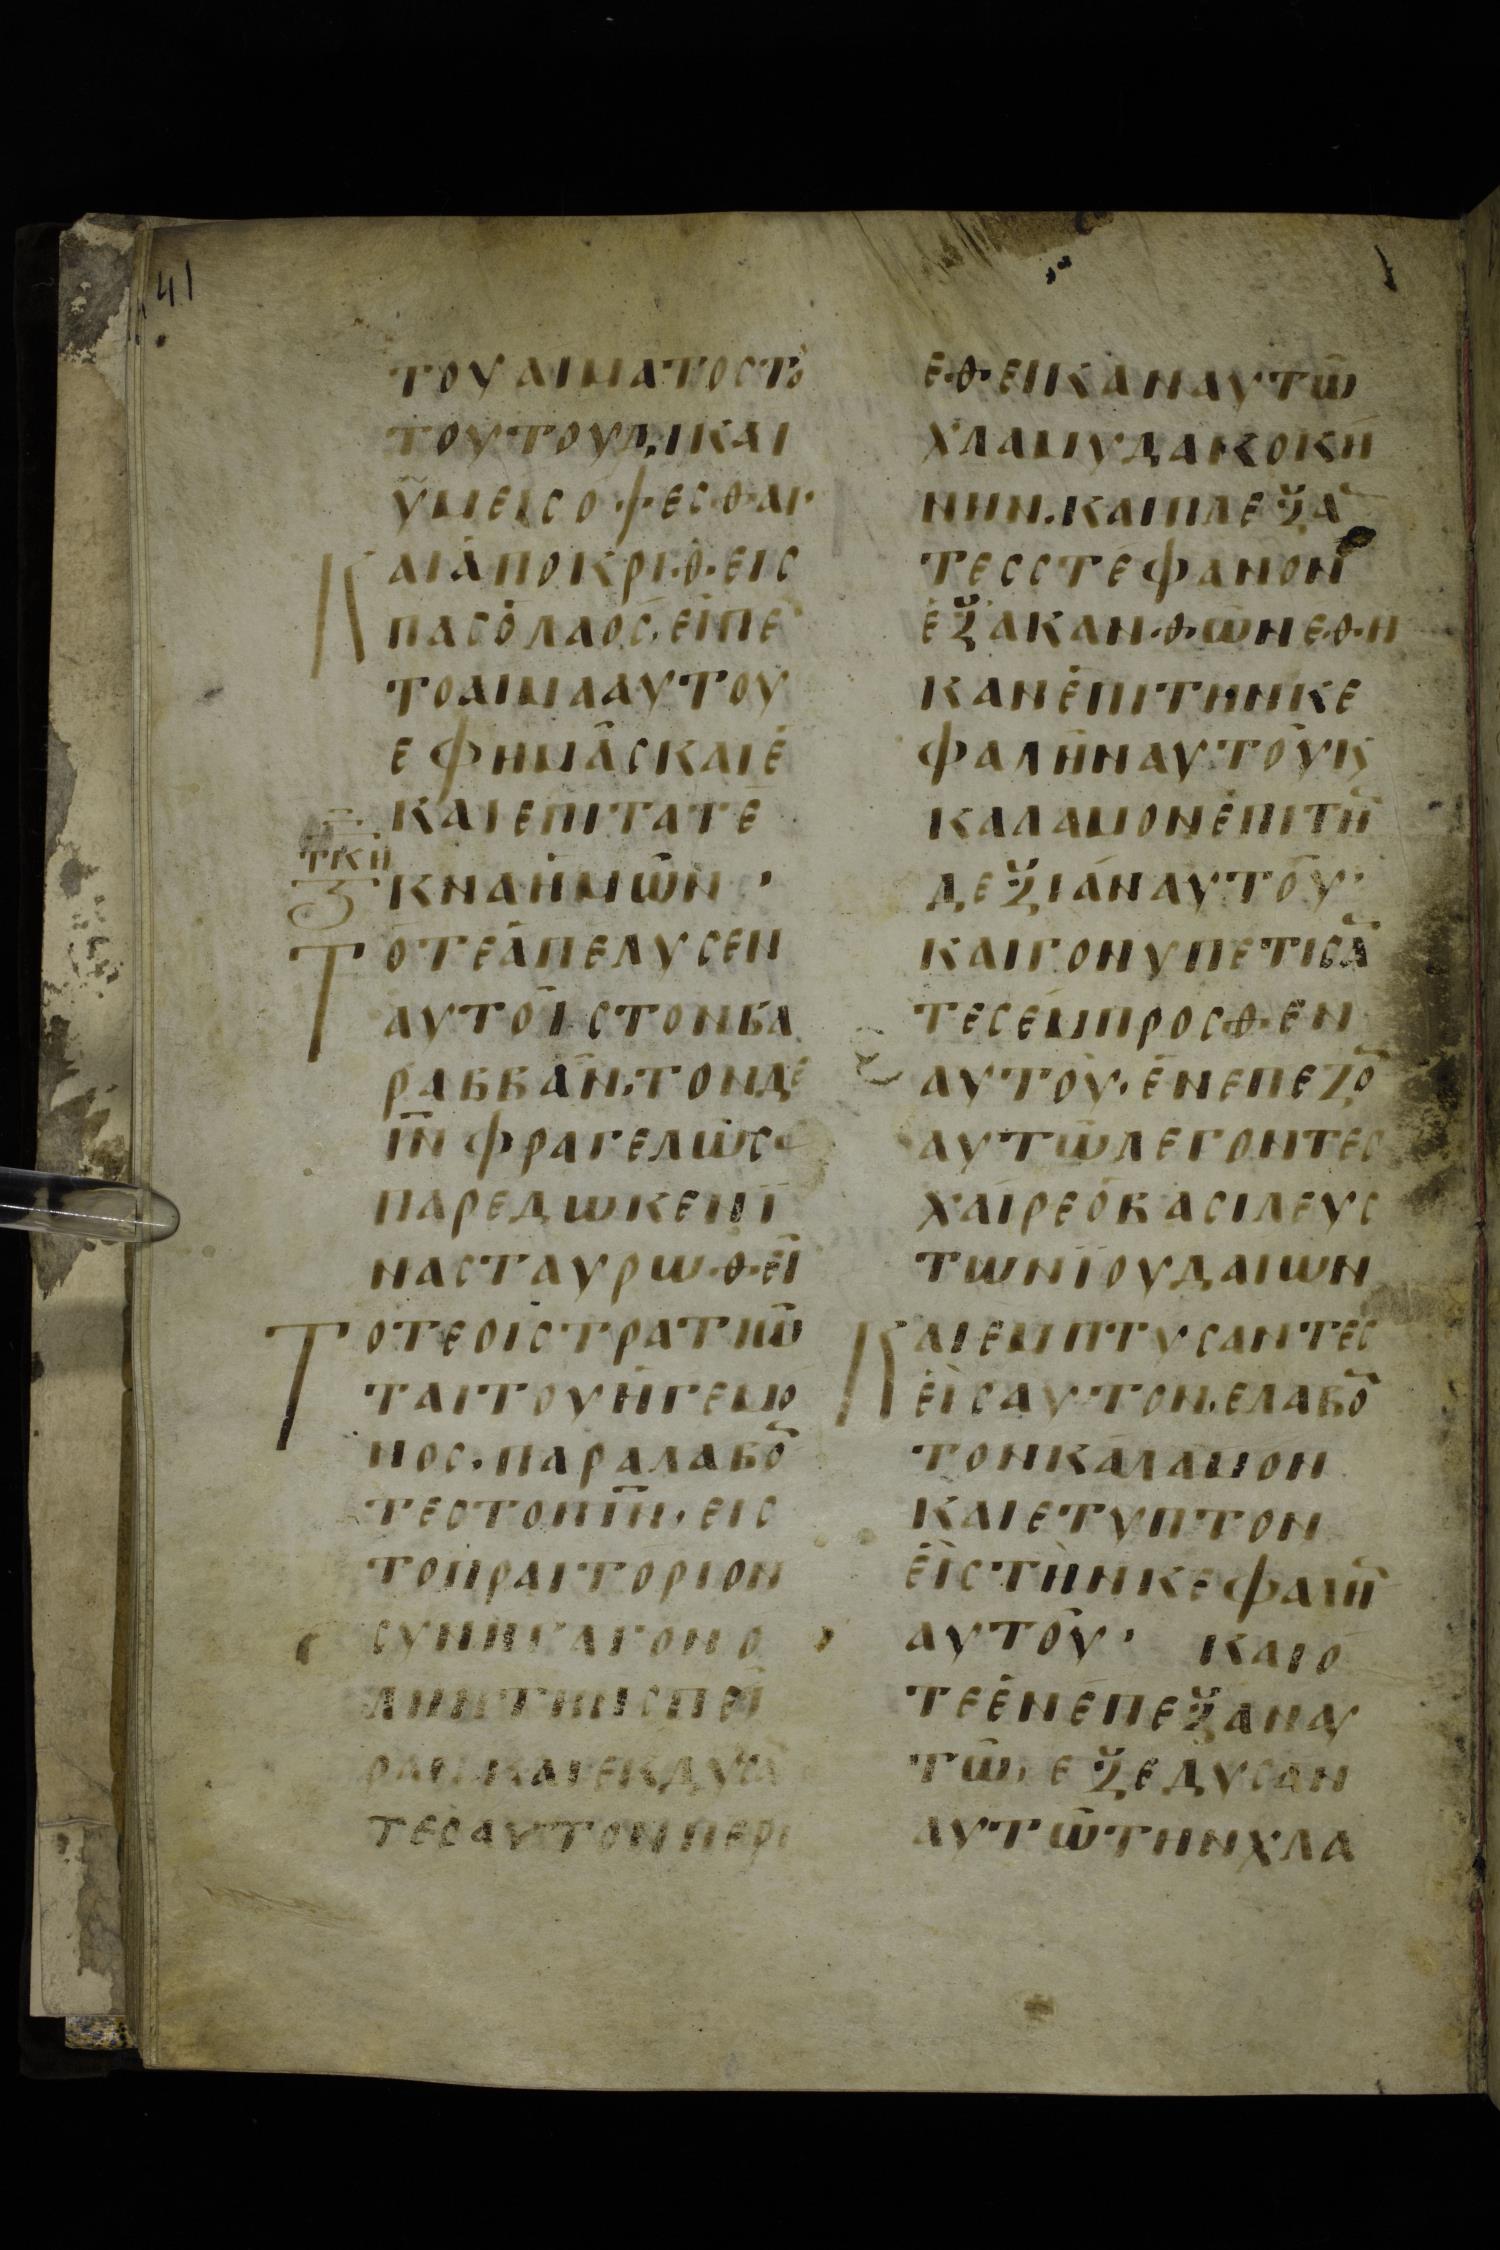 41
ΤΟΥΑΙΜΑΤΟΣΤȣ
ΤΟΥΤΟΥΔΙΚΑΙ
ΫΜΕΙΣΟΦΕΣΘΑΙ·
ΚΑΙΑΠΟΚΡΙΘΕΙΣ
ΠΑΣΟΛΑΟΣ·ΕΙΠΕ
ΤΟΑΙΜΑΑΥΤΟΥ
ΕΦΗΜΑΣΚΑΙΕ
ΚΑΙΕΠΙΤΑΤΕ
ΤΚΗ
ΚΝΑΗΜΩΝ·
ΤΟΤΕΑΠΕΛΥΣΕΝ
ΑΥΤΟΙΣΤΟΝΒΑ
ΡΑΒΒΑΝ·ΤΟΝΔΕ
ΙΝ̅ΦΡΑΓΕΛΩΣ
ΠΑΡΕΔΩΚΕΝΪ
ΝΑΣΤΑΥΡΩΘΕΙ
ΤΟΤΕΟΙΣΤΡΑΤΙΩ
ΤΑΙΤΟΥΗΓΕΜΟ
ΝΟΣ·ΠΑΡΑΛΑΒΟ̅
ΤΕΣΤΟΝΙΝ̅·ΕΙΣ
ΤΟΠΡΑΙΤΟΡΙΟΝ
ΣΥΝΗΓΑΓΟΝΟ
ΛΗΝΤΗΝΣΠΕΙ
ΡΑΝ·ΚΑΙΕΚΔΥΣΑ̅
ΤΕΣΑΥΤΟΝΠΕΡΙ
ΕΘΕΙΚΑΝΑΥΤΩ
ΧΛΑΜΥΔΑΚΟΚΗ
ΝΗΝ·ΚΑΙΠΛΕΞΑ̅
ΤΕΣΣΤΕΦΑΝΟΝ
ΕΞΑΚΑΝΘΩΝΕΘΗ
ΚΑΝΕΠΙΤΗΝΚΕ
ΦΑΛΗΝΑΥΤΟΥΚ
ΚΑΛΑΜΟΝΕΠΙΤΗ̅
ΔΕΞΙΑΝΑΥΤΟΥ·
ΚΑΙΓΟΝΥΠΕΤΙΣΑ̅
ΤΕΣΕΜΠΡΟΣΘΕΝ
ΑΥΤΟΥ·ΕΝΕΠΕΖΟ̅
ΑΥΤΩΛΕΓΟΝΤΕΣ
ΧΑΙΡΕΟΒΑΣΙΛΕΥΣ
ΤΩΝΪΟΥΔΑΙΩΝ
ΚΑΙΕΜΠΤΥΣΑΝΤΕΣ
ΕΙΣΑΥΤΟΝ·ΕΛΑΒΟ̅
ΤΟΝΚΑΛΑΜΟΝ
ΚΑΙΕΤΥΠΤΟΝ
ΕΙΣΤΗΝΚΕΦΑΛΗ̅
ΑΥΤΟΥ· ΚΑΙΟ
ΤΕΕΝΕΠΕΞΑΝΑΥ
ΤΩ· ΕΞΕΔΥΣΑΝ
ΑΥΤΩΤΗΝΧΛΑ